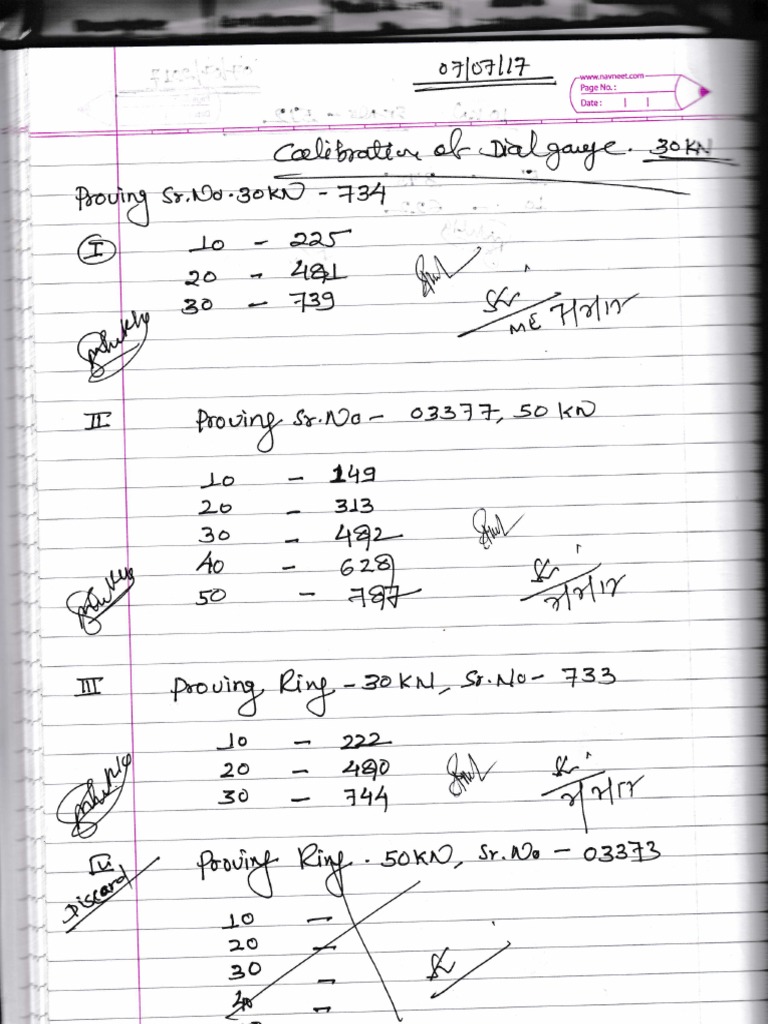 07/07/17
www.navneet.com
Page No.:
Date:
Calibration of Dial gauge. 30KN
Proving Sr.No.30KN - 734
I
10 - 225
20 - 481
30 - 739
ME 7/7/17
II Proving Sr.No - 03377, 50 KN
10 - 149
20 - 313
30 - 482
40 - 628
50 - 787
7/7/17
III Proving Ring - 30KN, Sr.No - 733
10 - 222
20 - 480
30 - 744
7/7/17
IV Proving Ring . 50KN, Sr.No - 03373
Discard
10 -
20 -
30 -
40 -